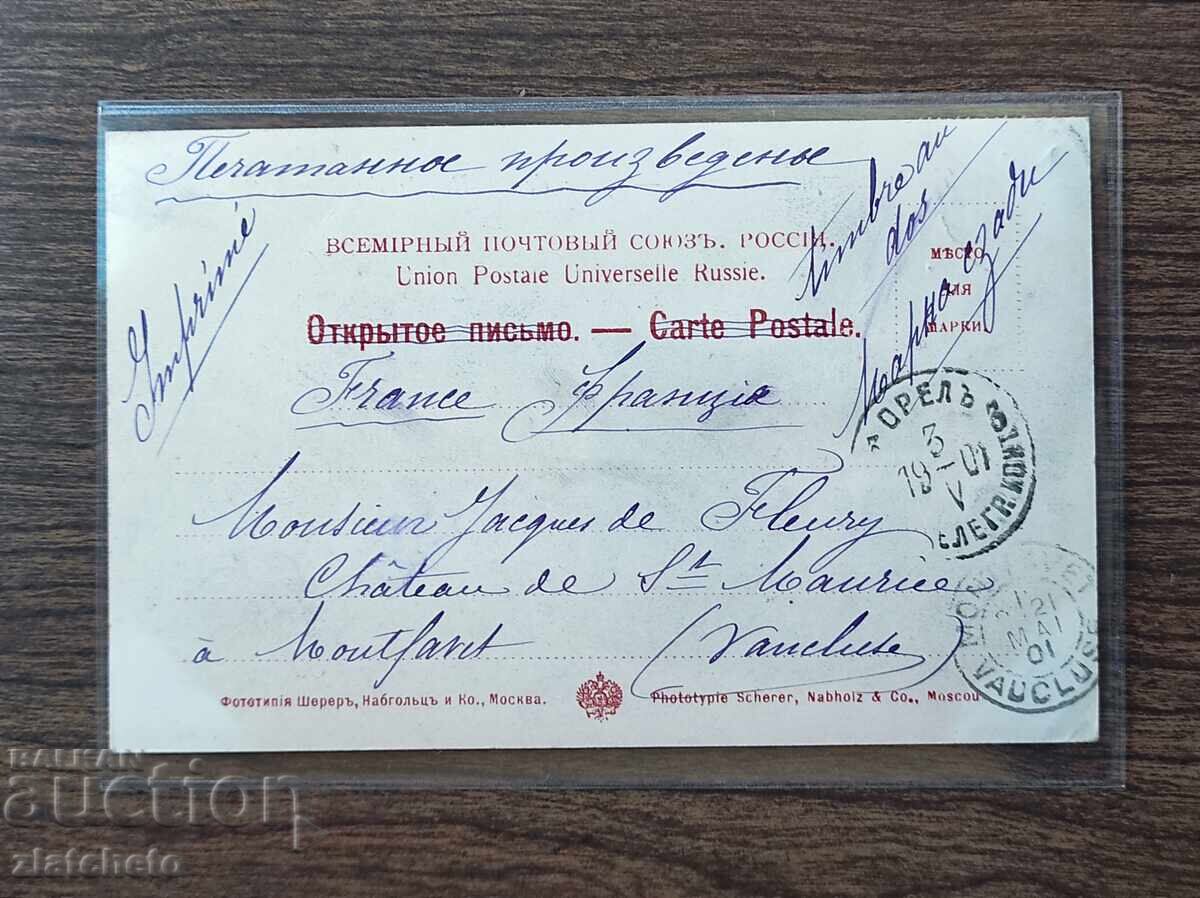 Печатанное произведенье
Imprimé
timbre au
dos
марка сзади
ВСЕМІРНЫЙ ПОЧТОВЫЙ СОЮЗЪ. РОССІЯ.
Union Postale Universelle Russie.
МѢСТО
ДЛЯ
МАРКИ
Открытое письмо. — Carte Postale.
France Франція
ОРЕЛЪ
3
19-01
V
Monsieur Jacques de Fleury
Château de St Maurice
à Montfavet (Vaucluse)
21
MAI
01
VAUCLUSE
Фототипія Шереръ, Набгольцъ и Ко., Москва.
Phototypie Scherer, Nabholz & Co., Moscou
BALKAN
auction
zlatcheto